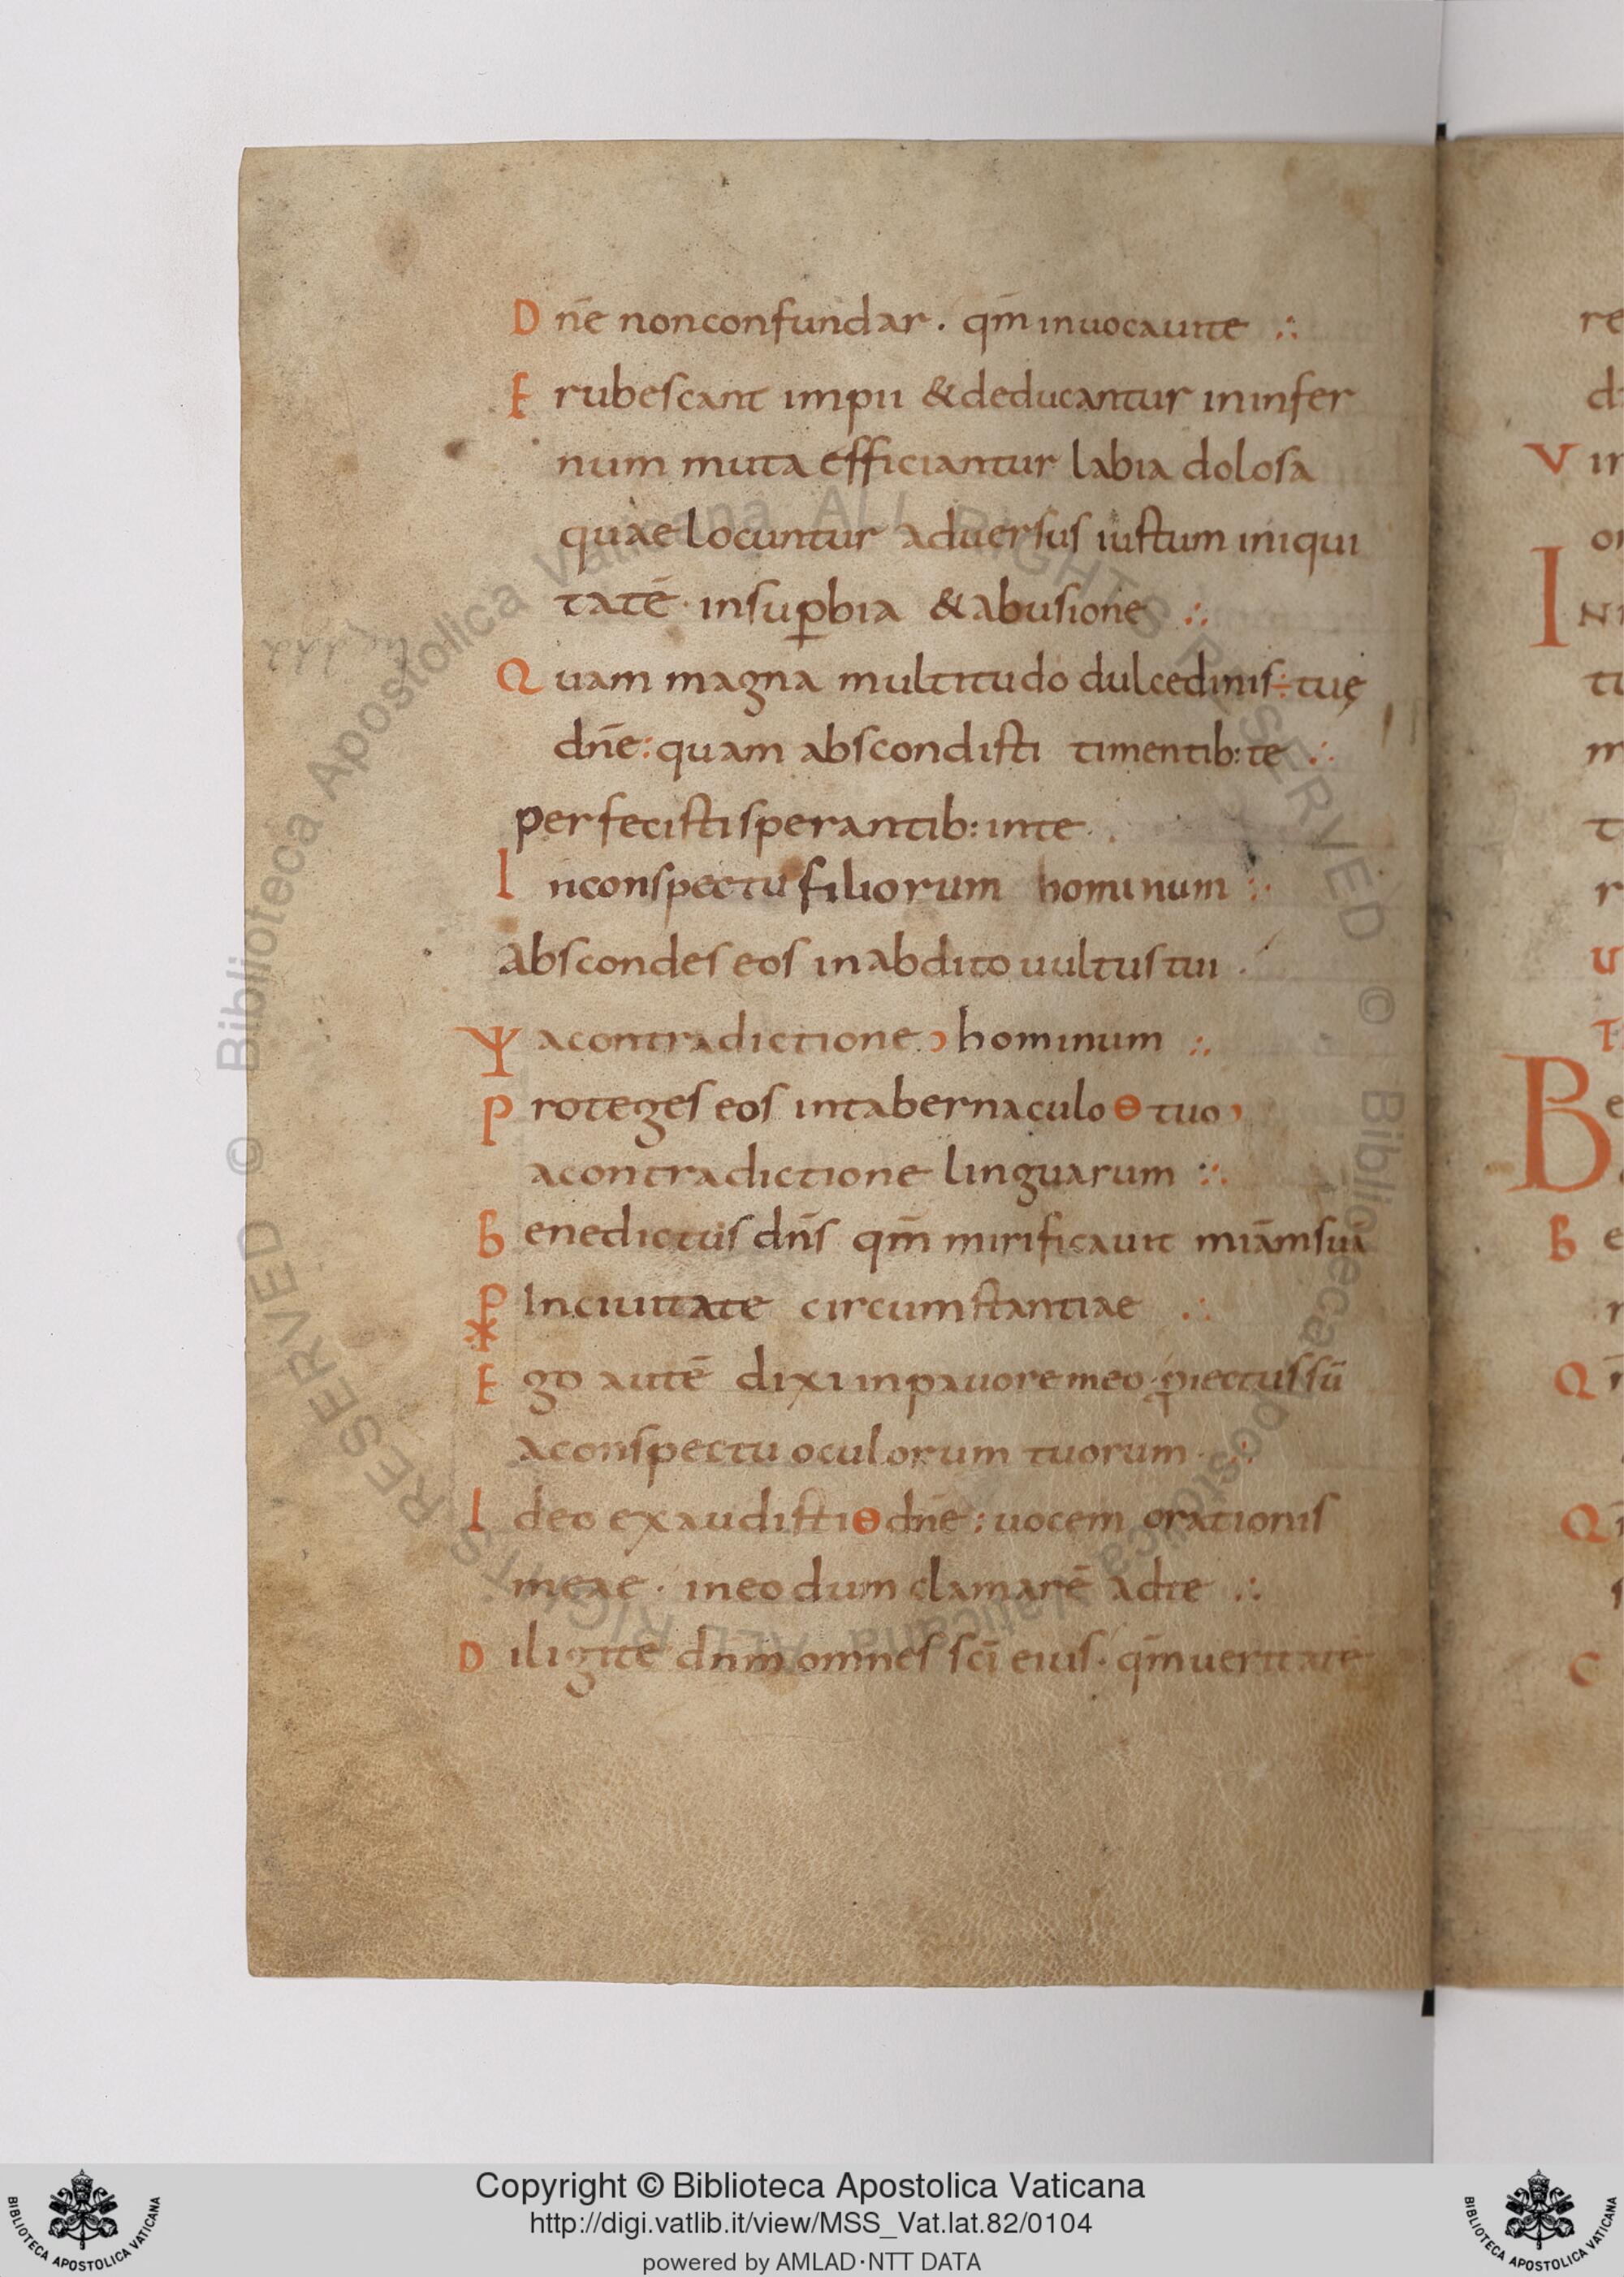 D nē nonconfundar · qm̄ inuocauite ∴
E rubescant impii & deducantur ininfer
num muta efficiantur labia dolosa
quae locuntur aduersus iustum iniqui
tatē · insuꝑbia & abusione ∴
Q uam magna multitudo dulcedinis ÷ tuę
dn̄e : quam abscondisti timentib: te ∴
perfecisti sperantib: inte ·
I nconspectu filiorum hominum ∴
abscondes eos inabdito uultus tui ·
Ψ acontradictione hominum ∴
P roteges eos intabernaculo ϴ tuo
acontradictione linguarum ∴
B enedictus dn̄s qm̄ mirificauit miām suā
Inciuitate circumstantiae ∴
E go autē dixi inpauore meo · ꝓiectus sū
aconspectu oculorum tuorum · ∴
I deo exaudisti ϴ dn̄e : uocem orationis
meae · ineo dum clamarē adte ∴
D iligite dnm̄ omnes sc̄i eius · qm̄ ueritatē
re
d
V in
I N
tu
m
t
r
u
T
B e
B e
Q
Q
C
© Biblioteca Apostolica Vaticana ALL RIGHTS RESERVED © Biblioteca Apostolica Vaticana ALL RIGHTS RESERVED
Copyright © Biblioteca Apostolica Vaticana
http://digi.vatlib.it/view/MSS_Vat.lat.82/0104
powered by AMLAD·NTT DATA
BIBLIOTECA APOSTOLICA VATICANA
BIBLIOTECA APOSTOLICA VATICANA